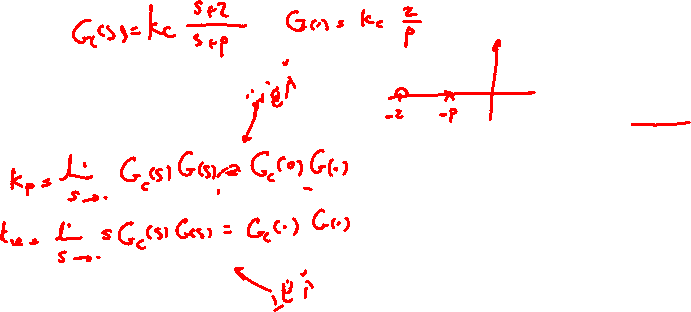 G_c(s) = k_c (s+z)/(s+p)   G(0) = k_c z/p
-z -p
k_p = lim s→0 G_c(s) G(s) = G_c(0) G(0)
k_v = lim s→0 s G_c(s) G(s) = G_c(0) G(0)